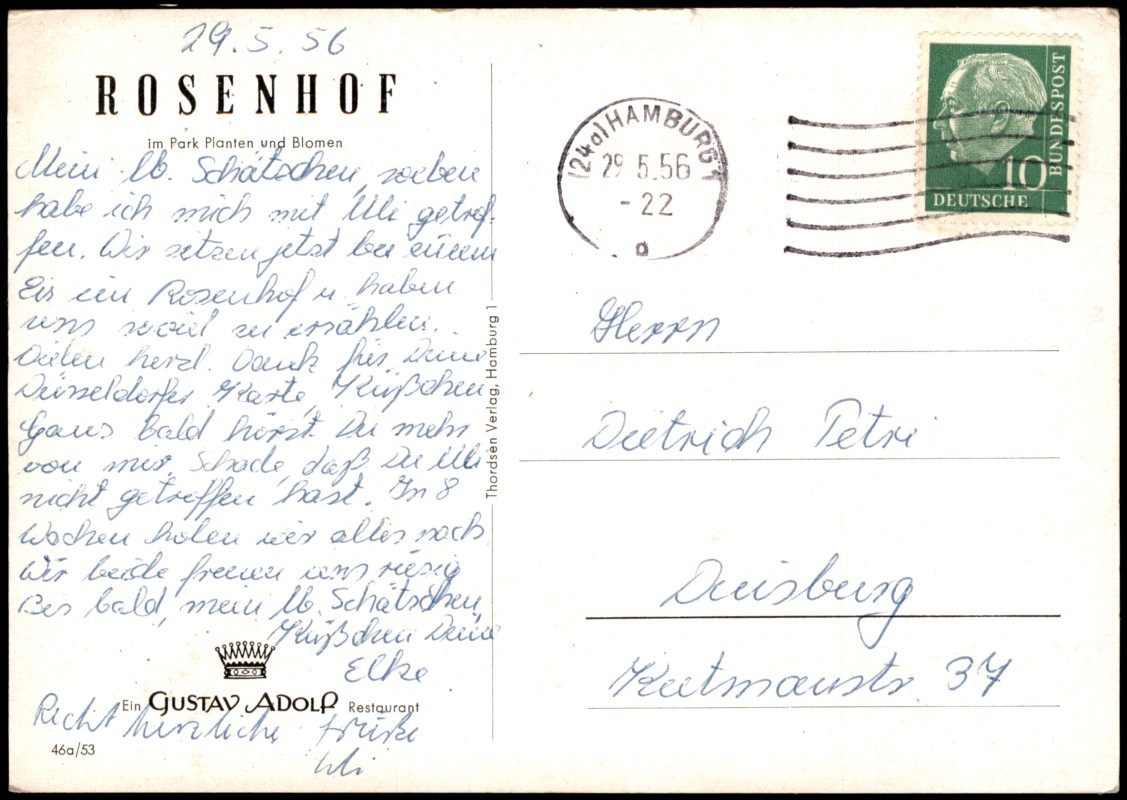 29.5.56
ROSENHOF
im Park Planten und Blomen
Mein lb. Schätzchen, soeben
habe ich mich mit Uli getrof-
fen. Wir sitzen jetzt bei einem
Eis im Rosenhof u. haben
uns soviel zu erzählen.
Vielen herzl. Dank für Deine
Düsseldorfer Karte, Küßchen
Ganz bald hörst Du mehr
von mir. Schade, daß Du Uli
nicht getroffen hast. In 8
Wochen holen wir alles nach.
Wir beide freuen uns riesig
Bis bald, mein lb. Schätzchen,
Küßchen Deine
Elke
Ein GUSTAV ADOLF Restaurant
Recht herzliche Grüße
Uli
46a/53
Thordsen Verlag, Hamburg 1
(24a) HAMBURG 1
29.5.56
-22
a
10
DEUTSCHE
BUNDESPOST
Herrn
Dietrich Petri
Duisburg
37